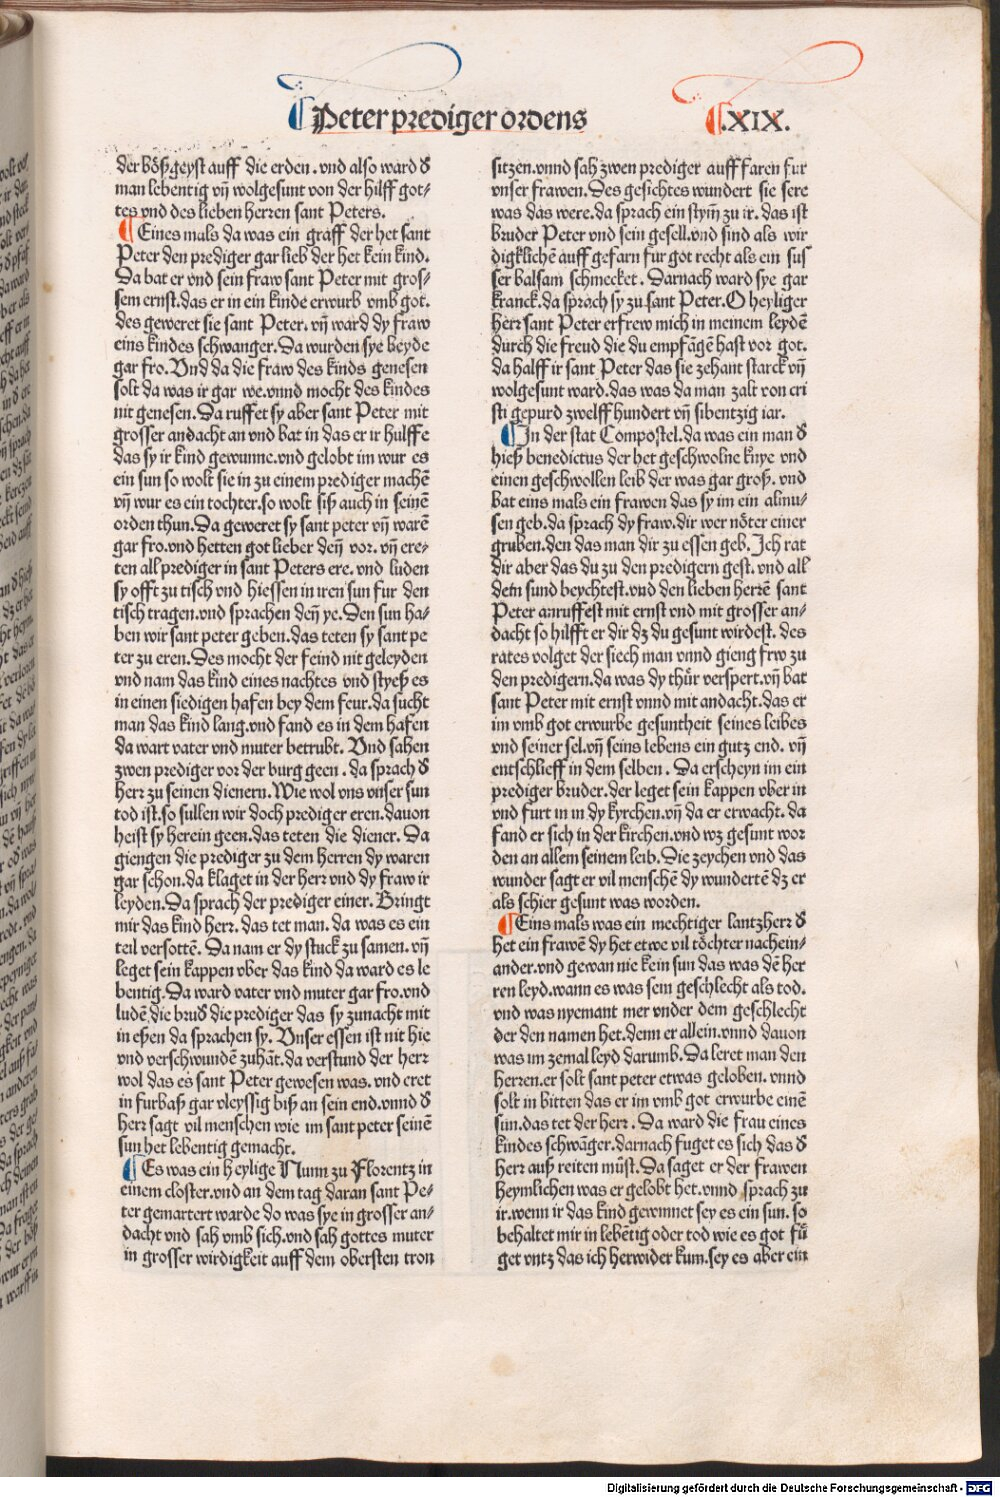 Peter prediger ordens
.XIX.
der böß geyst auff die erden. vnd also ward d̕
man lebentig vn̄ wolgesunt von der hilff got⸗
tes vnd des lieben herren sant Peters.
Eines mals da was ein graff der het sant
Peter den prediger gar lieb der het kein kind.
Da bat er vnd sein fraw sant Peter mit gros⸗
sem ernst. das er in ein kinde erwurb vmb got.
des geweret sie sant Peter. vn̄ ward dy fraw
eins kindes schwanger. Da wurden sye beyde
gar fro. Vnd da die fraw des kinds genesen
solt da was ir gar we. vnnd mocht des kindes
nit genesen. Da ruffet sy aber sant Peter mit
grosser andacht an vnd bat in das er ir hulffe
das sy ir kind gewunne. vnd gelobt im wur es
ein sun so wolt sie in zu einem prediger machē
vn̄ wur es ein tochter. so wolt siß auch in seinē
orden thun. Da geweret sy sant peter vn̄ warē
gar fro. vnd hetten got lieber den̄ vor. vn̄ ere⸗
ten all prediger in sant Peters ere. vnd luden
sy offt zu tisch vnd hiessen in iren sun fur den
tisch tragen. vnd sprachen den̄ ye. Den sun ha⸗
ben wir sant peter geben. das teten sy sant pe
ter zu eren. Des mocht der feind nit geleyden
vnd nam das kind eines nachtes vnd styeß es
in einen siedigen hafen bey dem feur. da sucht
man das kind lang. vnd fand es in dem hafen
da wart vater vnd muter betrubt. Vnd sahen
zwen prediger vor der burg geen. da sprach d̕
herr zu seinen dienern. Wie wol vns vnser sun
tod ist. so sullen wir doch prediger eren. dauon
heist sy herein geen. das teten die diener. Da
giengen die prediger zu dem herren dy waren
gar schon. da klaget in der herr vnd dy fraw ir
leyden. Da sprach der prediger einer. Bringt
mir das kind herr. das tet man. da was es ein
teil versottē. Da nam er dy stuck zu samen. vn̄
leget sein kappen vber das kind da ward es le
bentig. Da ward vater vnd muter gar fro. vnd
ludē die brud̕ die prediger das sy zunacht mit
in eßen da sprachen sy. Vnser essen ist nit hie
vnd verschwundē zuhāt. da verstund der herr
wol das es sant Peter gewesen was. vnd eret
in furbaß gar vleyssig biß an sein end. vnnd d̕
herr sagt vil menschen wie im sant peter seinē
sun het lebentig gemacht.
Es was ein heylige Nunn zu Florentz in
einem closter. vnd an dem tag daran sant Pe⸗
ter gemartert warde do was sye in grosser an⸗
dacht vnd sah vmb sich. vnd sah gottes muter
in grosser wirdigkeit auff dem obersten tron
sitzen. vnnd sah zwen prediger auff faren fur
vnser frawen. Des gesichtes wundert sie sere
was das were. da sprach ein stym̄ zu ir. das ist
bruder Peter vnd sein gesell. vnd sind als wir
digklichē auff gefarn fur got recht als ein sus
ser balsam schmecket. Darnach ward sye gar
kranck. da sprach sy zu sant Peter. O heyliger
herr sant Peter erfrew mich in meinem leydē
durch die freud die du empfāgē hast vor got.
da halff ir sant Peter das sie zehant starck vn̄
wolgesunt ward. das was da man zalt von cri
sti gepurd zwelff hundert vn̄ sibentzig iar.
In der stat Compostel. da was ein man d̕
hieß benedictus der het geschwolne knye vnd
einen geschwollen leib der was gar groß. vnd
bat eins mals ein frawen das sy im ein almu⸗
sen geb. da sprach dy fraw. dir wer nöter einer
gruben. den das man dir zu essen geb. Ich rat
dir aber das du zu den predigern gest. vnd all
dein sund beychtest. vnd den lieben herrē sant
Peter anruffest mit ernst vnd mit grosser an⸗
dacht so hilfft er dir dz du gesunt wirdest. des
rates volget der siech man vnnd gieng frw zu
den predigern. da was dy thür verspert. vn̄ bat
sant Peter mit ernst vnnd mit andacht. das er
im vmb got erwurbe gesuntheit seines leibes
vnd seiner sel. vn̄ seins lebens ein gutz end. vn̄
entschlieff in dem selben. Da erscheyn im ein
prediger bruder. der leget sein kappen vber in
vnd furt in in dy kyrchen. vn̄ da er erwacht. da
fand er sich in der kirchen. vnd wz gesunt wor
den an allem seinem leib. Die zeychen vnd das
wunder sagt er vil menschē dy wundertē dz er
als schier gesunt was worden.
Eins mals was ein mechtiger lantzherr d̕
het ein frawē dy het etwe vil töchter nachein⸗
ander. vnd gewan nie kein sun das was dē her
ren leyd. wann es was sein geschlecht als tod.
vnd was nyemant mer vnder dem geschlecht
der den namen het. denn er allein. vnnd dauon
was im zemal leyd darumb. Da leret man den
herren. er solt sant peter etwas geloben. vnnd
solt in bitten das er im vmb got erwurbe einē
sun. das tet der herr. Da ward die frau eines
kindes schwāger. darnach fuget es sich das d̕
herr auß reiten müst. Da saget er der frawen
heymlichen was er gelobt het. vnnd sprach zu
ir. wenn ir das kind gewinnet sey es ein sun. so
behaltet mir in lebētig oder tod wie es got fu̇
get vntz das ich herwider kum. sey es aber ein
Digitalisierung gefördert durch die Deutsche Forschungsgemeinschaft - DFG